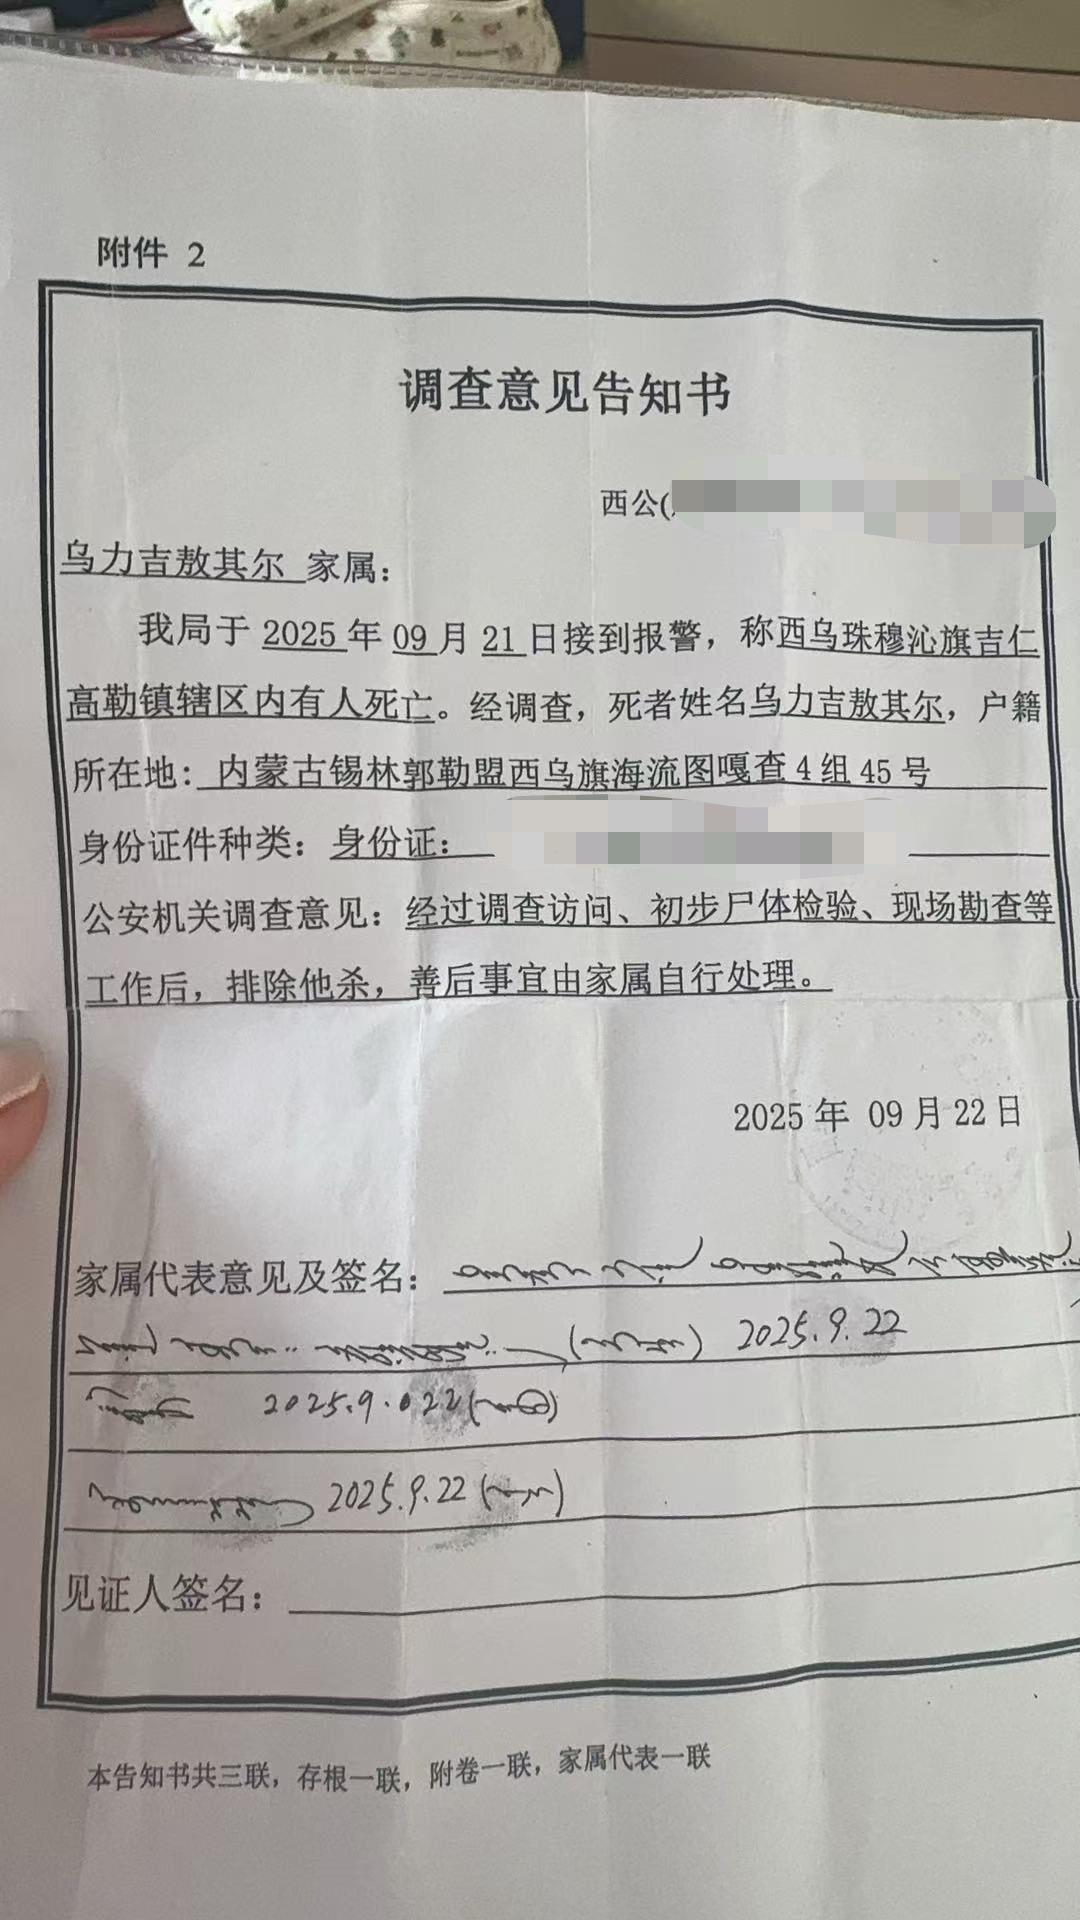 附件 2
调查意见告知书
西公(
乌力吉敖其尔 家属：
我局于 2025 年 09 月 21 日接到报警，称西乌珠穆沁旗吉仁
高勒镇辖区内有人死亡。经调查，死者姓名乌力吉敖其尔，户籍
所在地：内蒙古锡林郭勒盟西乌旗海流图嘎查 4 组 45 号
身份证件种类：身份证：
公安机关调查意见：经过调查访问、初步尸体检验、现场勘查等
工作后，排除他杀，善后事宜由家属自行处理。
2025 年 09 月 22 日
家属代表意见及签名：
2025.9.22
2025.9.022
2025.9.22
见证人签名：
本告知书共三联，存根一联，附卷一联，家属代表一联